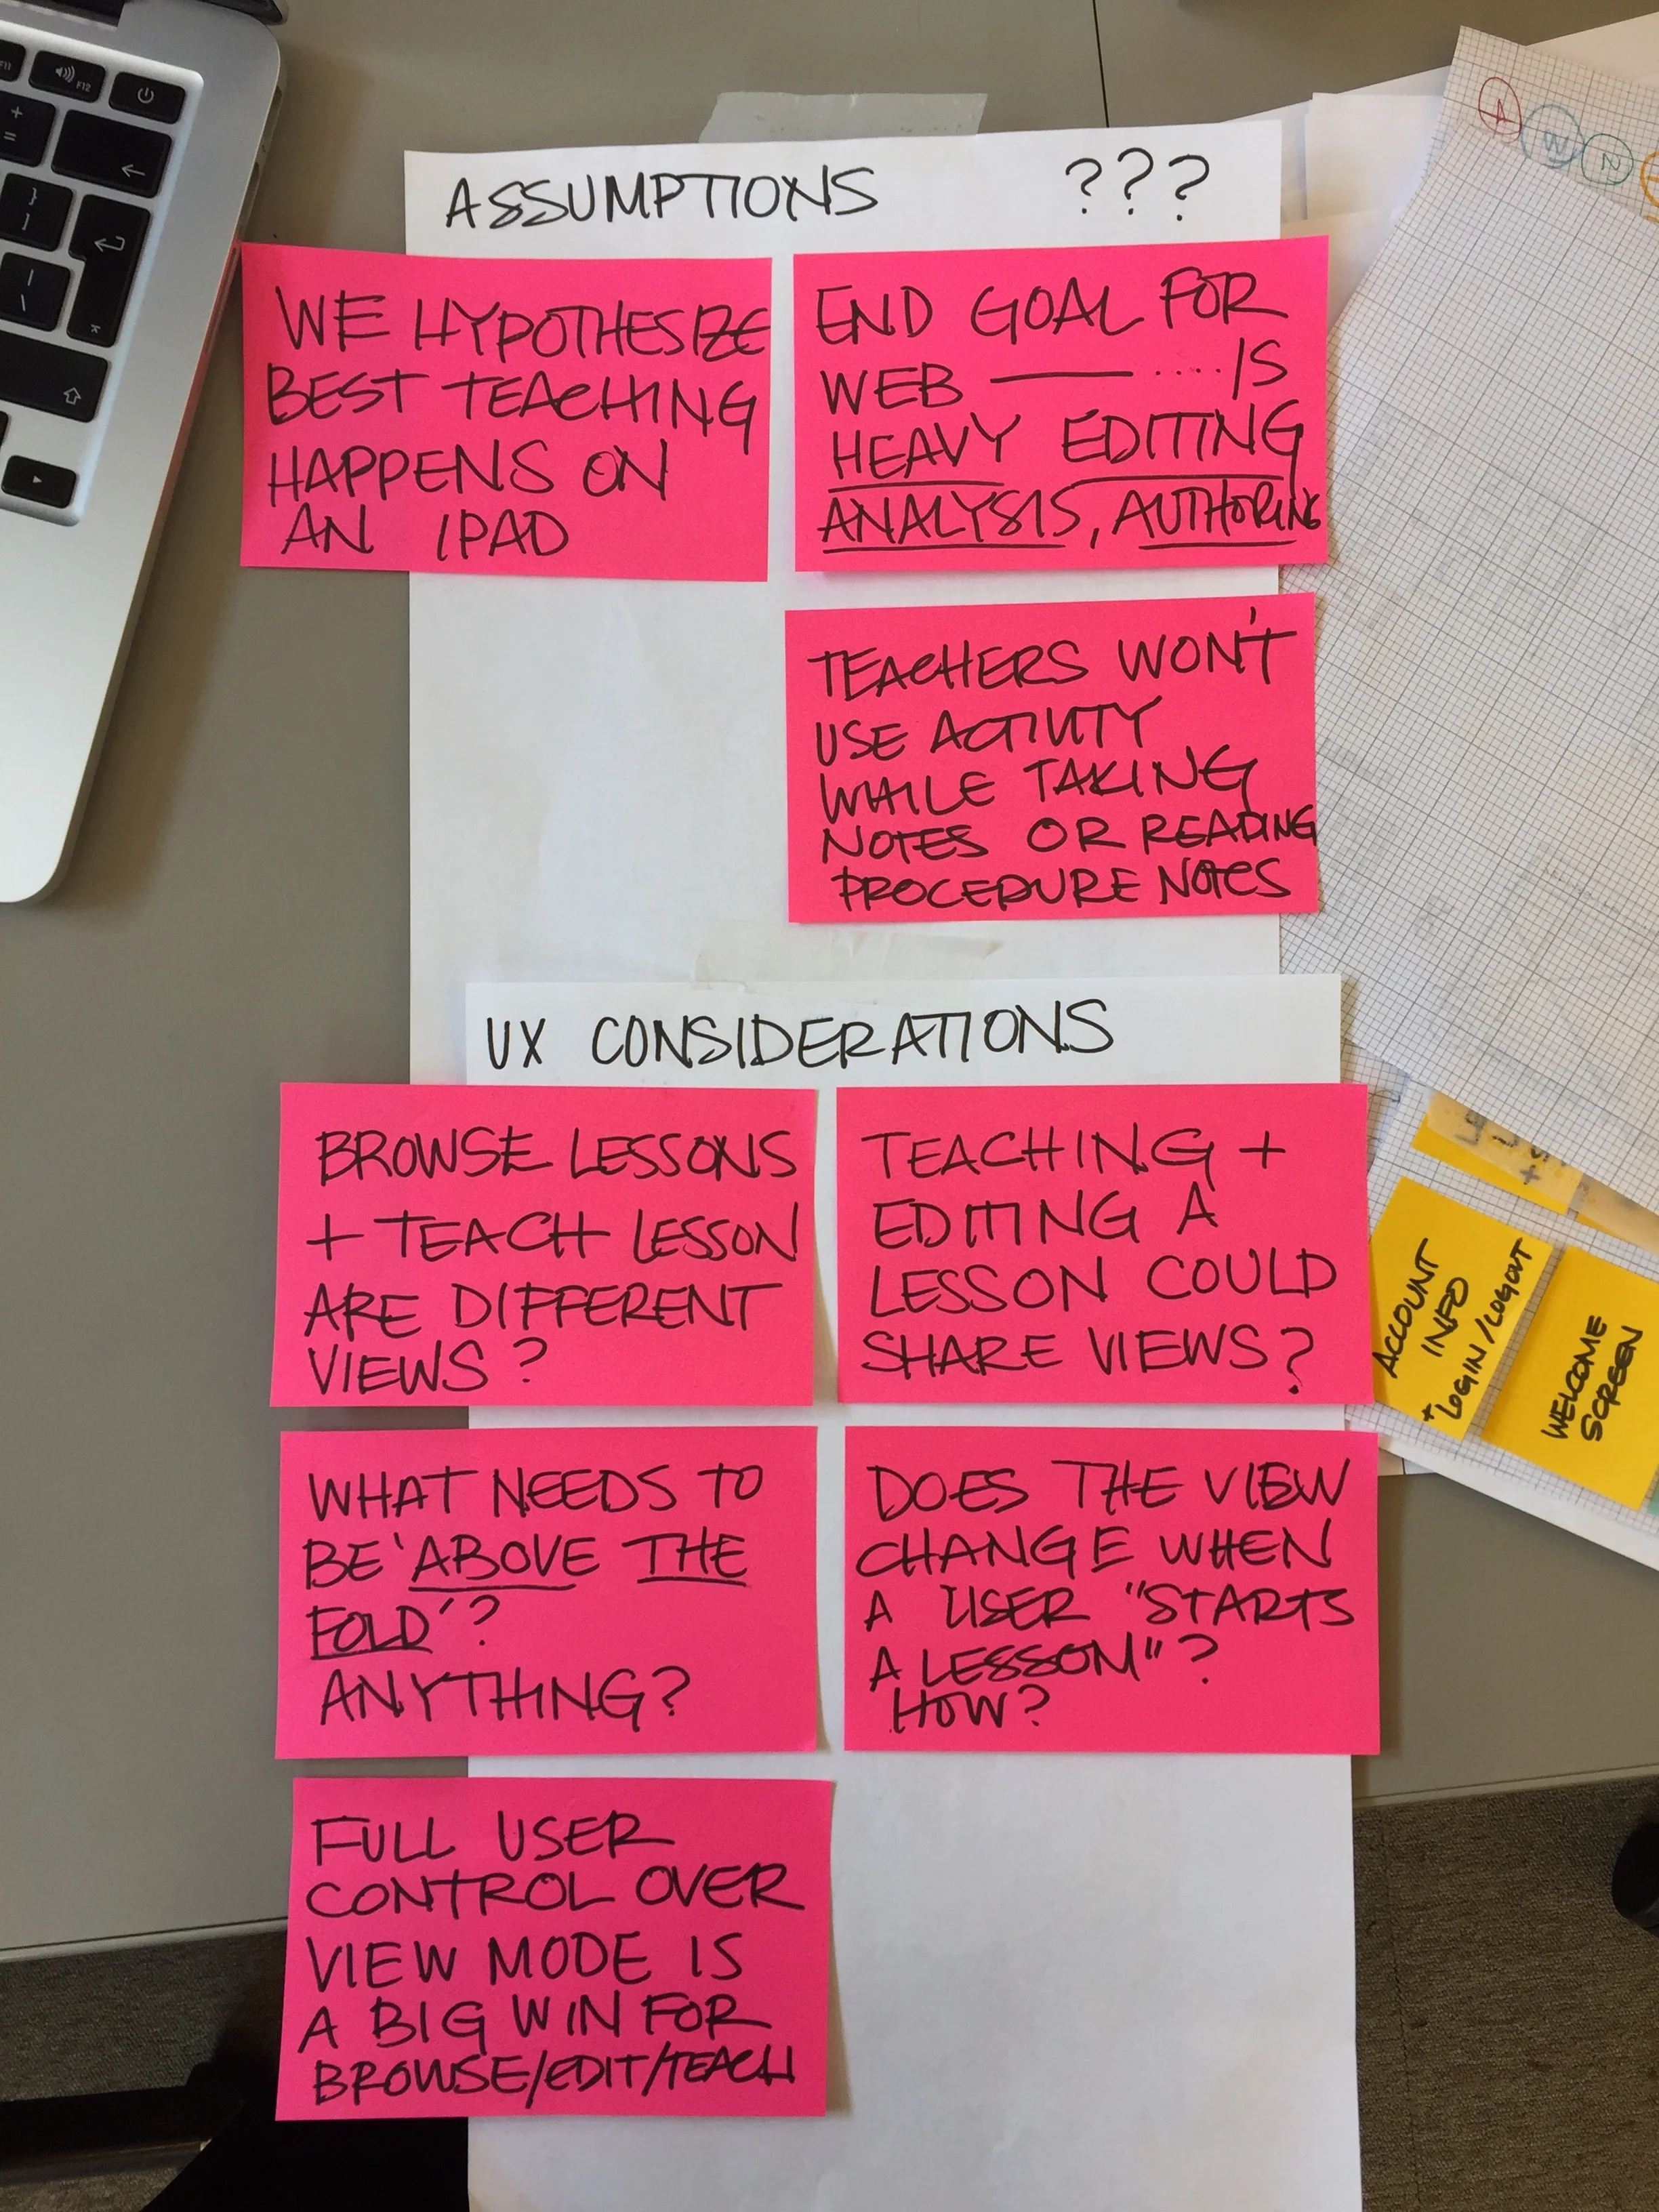 ASSUMPTIONS ???
WE HYPOTHESIZE
BEST TEACHING
HAPPENS ON
AN IPAD
END GOAL FOR
WEB ——— .... IS
HEAVY EDITING
ANALYSIS, AUTHORING
TEACHERS WON'T
USE ACTIVITY
WHILE TAKING
NOTES OR READING
PROCEDURE NOTES
UX CONSIDERATIONS
BROWSE LESSONS
+ TEACH LESSON
ARE DIFFERENT
VIEWS?
TEACHING +
EDITING A
LESSON COULD
SHARE VIEWS?
WHAT NEEDS TO
BE 'ABOVE THE
FOLD'?
ANYTHING?
DOES THE VIEW
CHANGE WHEN
A USER "STARTS
A LESSON"?
HOW?
FULL USER
CONTROL OVER
VIEW MODE IS
A BIG WIN FOR
BROWSE/EDIT/TEACH
ACCOUNT
INFO
+ LOGIN/LOGOUT
WELCOME
SCREEN
F11
F12
+
=
}
]
|
\
A
W
2